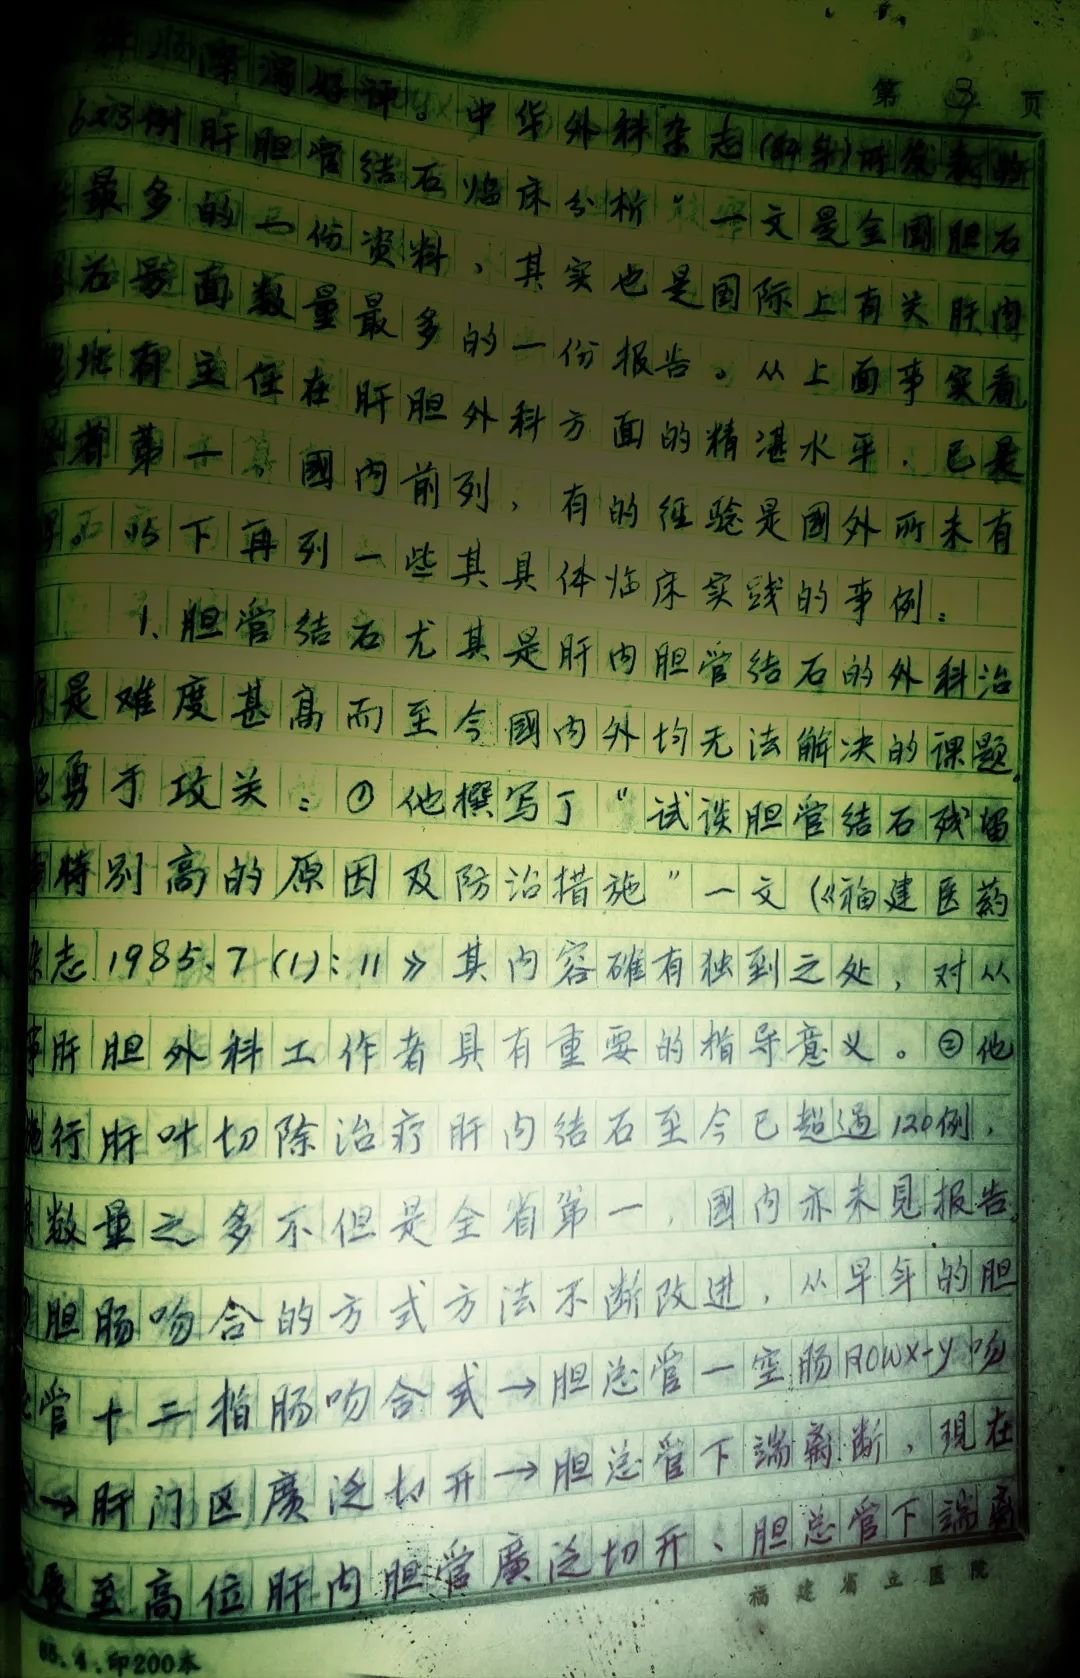 第 3 页
深 得好评。中华外科杂志(
623例肝胆管结石临床分析 一文是全国胆石
最多的一份资料，其实也是国际上有关肝内
石方面数量最多的一份报告。从上面事实看
有主任在肝胆外科方面的精湛水平，已是
省第一 國内前列，有的经验是國外所未有
。以下再列一些其具体临床实践的事例：
1、胆管结石尤其是肝内胆管结石的外科治
是难度甚高而至今國内外均无法解决的课题，
他勇于攻关：①他撰写了“试谈胆管结石残留
特别高的原因及防治措施”一文（《福建医药
杂志1985.7(1):11》其内容確有独到之处，对从
事肝胆外科工作者具有重要的指导意义。②他
施行肝叶切除治疗肝内结石至今已超过120例，
其数量之多不但是全省第一，國内亦未见报告。
胆肠吻合的方式方法不断改进，从早年的胆
管十二指肠吻合式→胆总管一空肠Rowx-y吻
→肝门区廣泛切开→胆总管下端离断，現在
发展至高位肝内胆管廣泛切开、胆总管下端离
福建省立医院
85.4.印200本